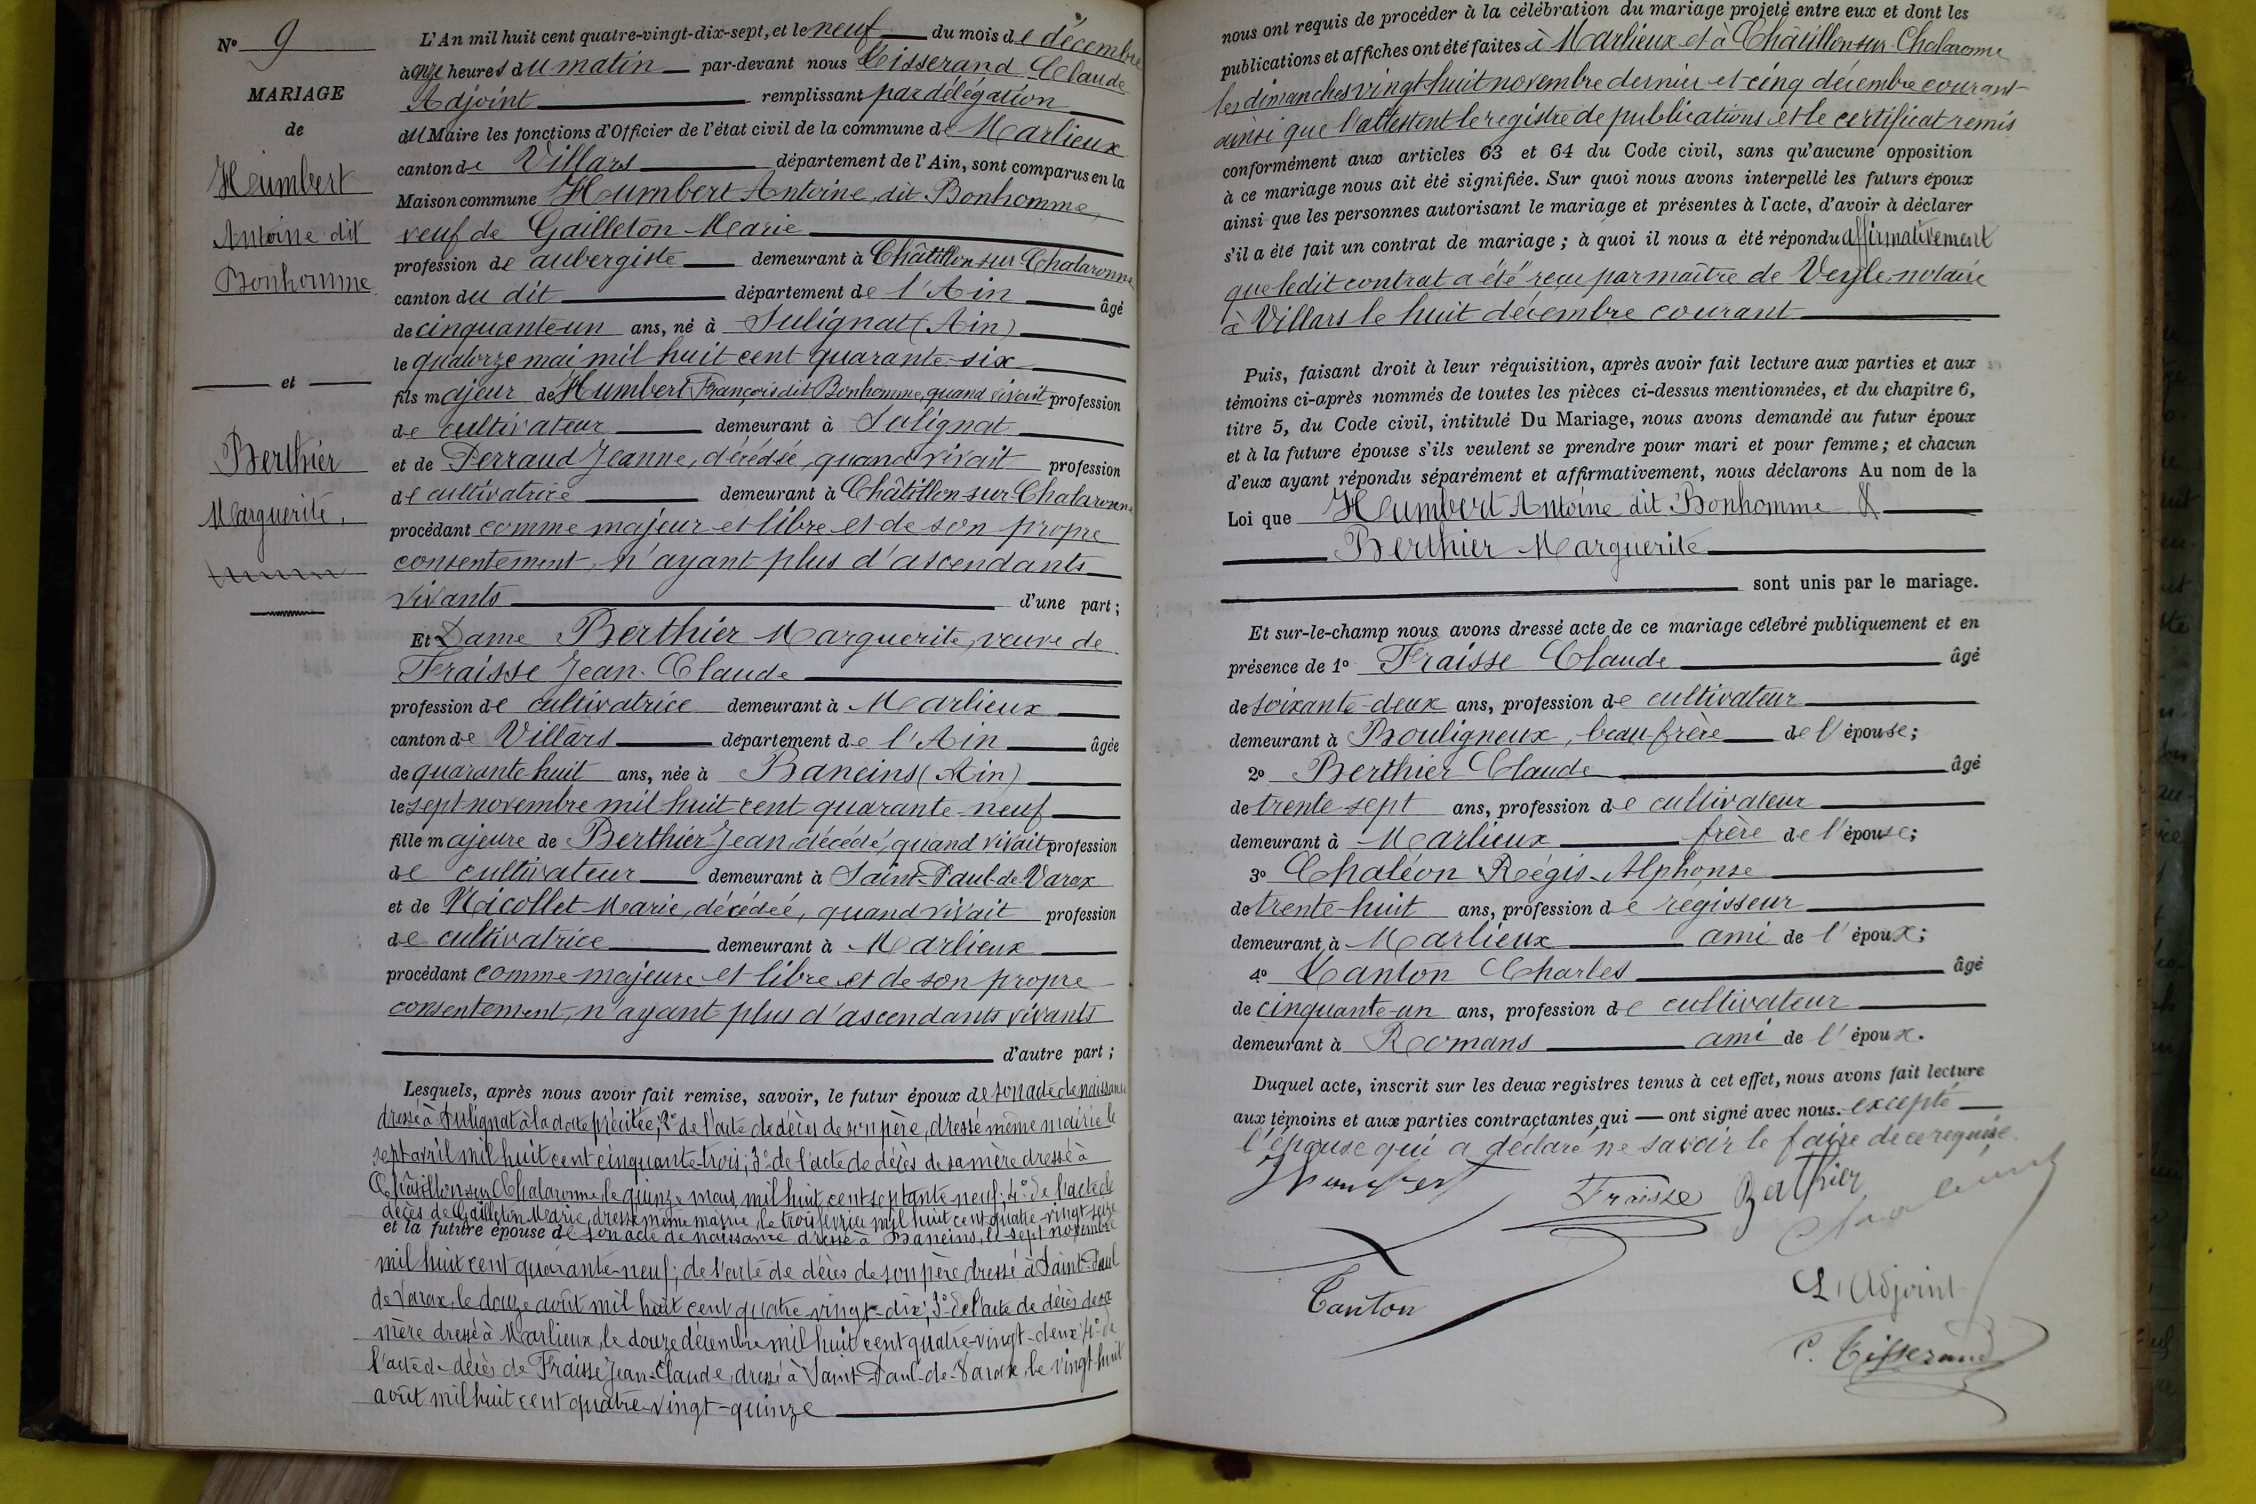 N° 9
MARIAGE
de
Humbert
Antoine dit
Bonhomme
et
Berthier
Marguerite.
L'An mil huit cent quatre-vingt-dix-sept, et le neuf du mois de décembre
à onze heures du matin par-devant nous Tisserand Claude
Adjoint remplissant par délégation
du Maire les fonctions d'Officier de l'état civil de la commune de Marlieux
canton de Villars département de l'Ain, sont comparus en la
Maison commune Humbert Antoine, dit Bonhomme,
veuf de Gailleton Marie
profession de aubergiste demeurant à Châtillon sur Chalaronne
canton du dit département de l'Ain âgé
de cinquante-un ans, né à Sulignat (Ain)
le quatorze mai mil huit cent quarante-six
fils majeur de Humbert François dit Bonhomme, quand vivait profession
de cultivateur demeurant à Sulignat
et de Perraud Jeanne, décédée, quand vivait profession
de cultivatrice demeurant à Châtillon-sur-Chalaronne
procédant comme majeur et libre et de son propre
consentement, n'ayant plus d'ascendants
vivants d'une part;
Et Dame Berthier Marguerite, veuve de
Fraisse Jean-Claude
profession de cultivatrice demeurant à Marlieux
canton de Villars département de l'Ain âgée
de quarante-huit ans, née à Baneins (Ain)
le sept novembre mil huit cent quarante-neuf
fille majeure de Berthier Jean, décédé, quand vivait profession
de cultivateur demeurant à Saint-Paul-de-Varax
et de Nicollet Marie, décédée, quand vivait profession
de cultivatrice demeurant à Marlieux
procédant comme majeure et libre et de son propre
consentement, n'ayant plus d'ascendants vivants
d'autre part;
Lesquels, après nous avoir fait remise, savoir, le futur époux de son acte de naissance
dressé à Sulignat à la date précitée; 2° de l'acte de décès de son père, dressé même mairie le
sept avril mil huit cent cinquante-trois; 3° de l'acte de décès de sa mère dressé à
Châtillon sur Chalaronne, le quinze mars mil huit cent septante-neuf; 4° de l'acte de
décès de Gailleton Marie, dressé même mairie, le trois février mil huit cent quatre-vingt-seize
et la future épouse de son acte de naissance dressé à Baneins, le sept novembre
mil huit cent quarante-neuf; de l'acte de décès de son père dressé à Saint-Paul
de Varax, le douze août mil huit cent quatre-vingt-dix; 3° de l'acte de décès de sa
mère dressé à Marlieux, le douze décembre mil huit cent quatre-vingt-deux; 4° de
l'acte de décès de Fraisse Jean-Claude, dressé à Saint-Paul-de-Varax, le vingt-huit
août mil huit cent quatre-vingt-quinze
nous ont requis de procéder à la célébration du mariage projeté entre eux et dont les
publications et affiches ont été faites à Marlieux et à Châtillon-sur-Chalaronne
les dimanches vingt-huit novembre dernier et cinq décembre courant
ainsi que l'attestent le registre de publications et le certificat remis
conformément aux articles 63 et 64 du Code civil, sans qu'aucune opposition
à ce mariage nous ait été signifiée. Sur quoi nous avons interpellé les futurs époux
ainsi que les personnes autorisant le mariage et présentes à l'acte, d'avoir à déclarer
s'il a été fait un contrat de mariage; à quoi il nous a été répondu affirmativement
que ledit contrat a été reçu par maître de Veyle, notaire
à Villars le huit décembre courant
Puis, faisant droit à leur réquisition, après avoir fait lecture aux parties et aux
témoins ci-après nommés de toutes les pièces ci-dessus mentionnées, et du chapitre 6,
titre 5, du Code civil, intitulé Du Mariage, nous avons demandé au futur époux
et à la future épouse s'ils veulent se prendre pour mari et pour femme; et chacun
d'eux ayant répondu séparément et affirmativement, nous déclarons Au nom de la
Loi que Humbert Antoine dit Bonhomme &
Berthier Marguerite
sont unis par le mariage.
Et sur-le-champ nous avons dressé acte de ce mariage célébré publiquement et en
présence de 1° Fraisse Claude âgé
de soixante-deux ans, profession de cultivateur
demeurant à Bouligneux, beau-frère de l'épouse;
2° Berthier Claude âgé
de trente-sept ans, profession de cultivateur
demeurant à Marlieux frère de l'épouse;
3° Chaléon Régis-Alphonse
de trente-huit ans, profession de régisseur
demeurant à Marlieux ami de l'époux;
4° Tanton Charles âgé
de cinquante-un ans, profession de cultivateur
demeurant à Romans ami de l'époux.
Duquel acte, inscrit sur les deux registres tenus à cet effet, nous avons fait lecture
aux témoins et aux parties contractantes qui ont signé avec nous. excepté
l'épouse qui a déclaré ne savoir le faire de ce requise.
Humbert
Fraisse Berthier
Chaléon
Tanton
L'Adjoint
C. Tisserand